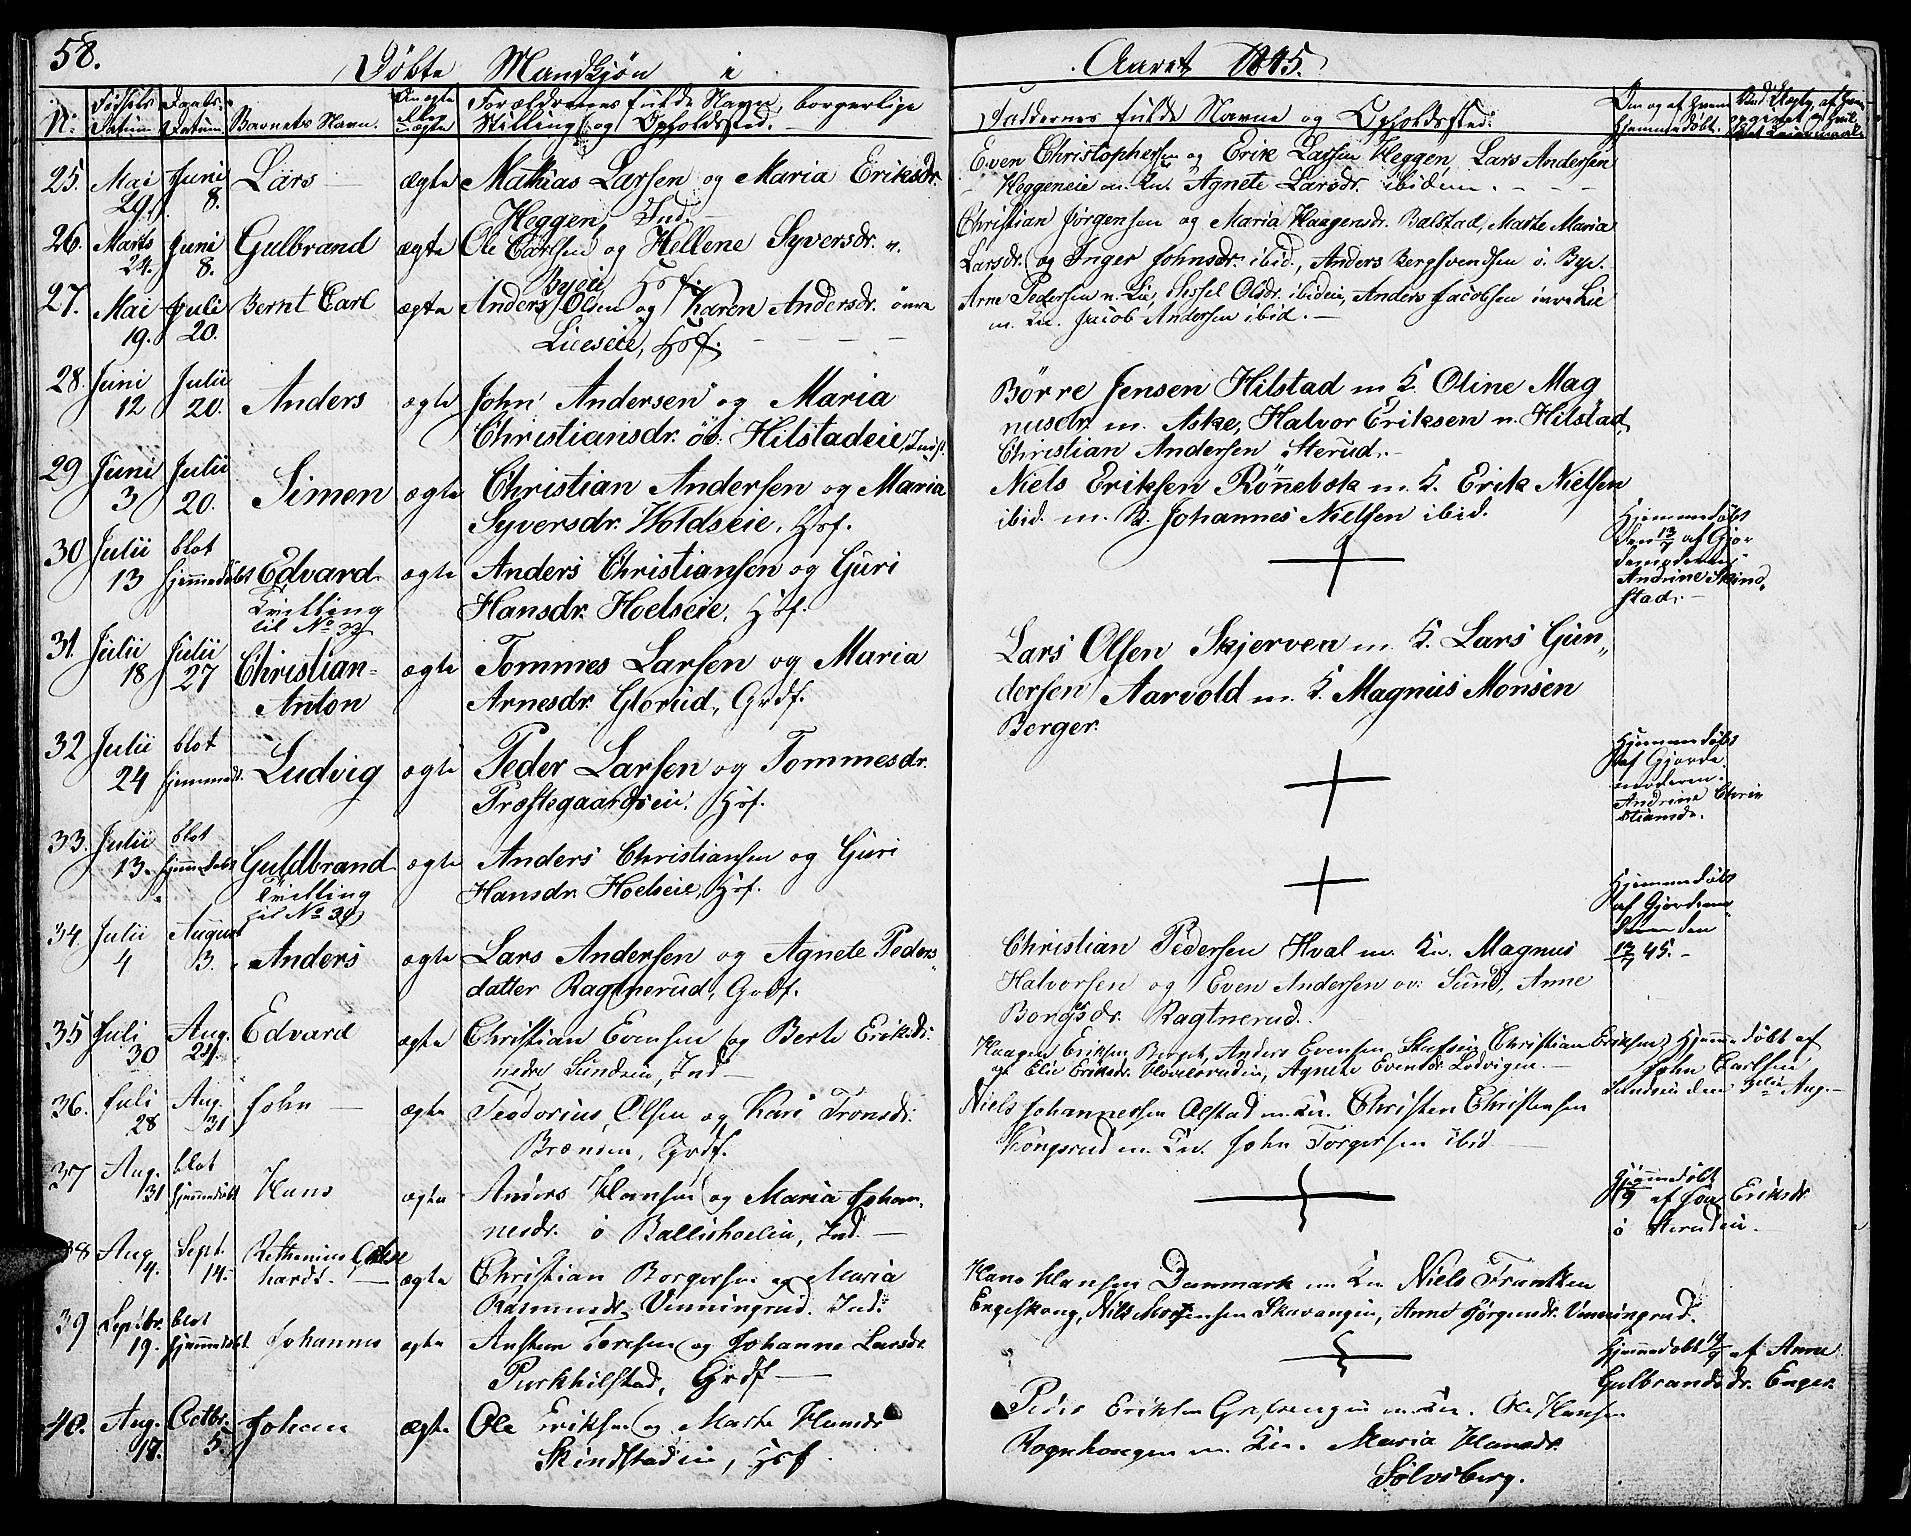 58.
Döbte Mandkjön i
Aaret 1845.
No. Födsels Datum. Daabs Datum. Barnets Navn. Om ægte eller uægte Forældrenes fulde Navne, borgerlige Stilling og Opholdsted.
Faddernes fulde Navne og Opholdsted. Om og af hvem hjemmedöbt.
25. Mai 29. Juni 8. Lars ægte Mathias Larsen og Maria Eriksdr.
Heggen, Ind.
Even Christophersen og Erik Larsen Heggen, Lars Andersen
Heggeneie m. Kn. Agnete Larsdr. ibidem.
26. Marts 24. Juni 8. Gulbrand ægte Ole Carlsen og Hellene Syversdr. n.
Byeie Hof
Christian Jörgensen og Maria Haagensdr. Balstad, Marthe Maria
Larsdr. og Inger Johnsdr. ibid., Anders Bergsvendsen ö. Bye.
27. Mai 19. Juli 20. Bernt Carl ægte Anders Olsen og Karen Andersdr. övre
Lieeseie, Hof.
Arne Pedersen n. Lie, Sissel Olsdr. ibideie, Anders Jacobsen övre Lie
m. Kn. Jacob Andersen ibid.
28. Juni 12 Julii 20. Anders ægte John Andersen og Maria
Christiansdr. öv: Hilstadeie, Indf.
Börre Jensen Hilstad m. K. Oline Mag
nusdr. m. Aske, Halvor Eriksen n. Hilstad,
Christian Andersen Sterud.
29 Juni 3 Julii 20. Simen ægte Christian Andersen og Maria
Syversdr. Woldseie, Hof.
Niels Eriksen Rönnebok m. K. Erik Nielsen
ibid. m. K. Johannes Nielsen ibid.
30 Julii 13 blot hjemmedöbt Edvard ægte Anders Christiansen og Guri
Tvilling
til No 33
Hansdr. Hoelseie, Hof.
Hjemmedöbt
den 13/7 af Gjor
demoderen
Andrine Skind
stad.
31. Julii 18 Julii 27 Christian
Anton
ægte Tommes Larsen og Maria
Arnesdr. Glorud, Grdf.
Lars Olsen Skjerven m. K. Lars Gun
dersen Aarvold m. K. Magnus Monsen
Berger.
32 Julii 24 blot hjemmed. Ludvig ægte Peder Larsen og Tommesdr.
Præstegaardseie, Hof.
Hjemmedöbt
af Gjorde
moderen
Andrine Chris
tiansdr.
33. Julii 13. blot hjemmedöbt Guldbrand ægte Anders Christiansen og Guri
Tvilling
til No 30
Hansdr. Hoelseie, Hof.
Hjemmedöbt
af Gjordemo
deren den
13/7 45.
34. Julii 4 August 3. Anders ægte Lars Andersen og Agnete Peders
datter Ragtnerud, Grdf.
Christian Pedersen Hval m. Kn. Magnus
Halvorsen og Even Andersen öv: Sund, Anne
Borgesdr. Ragtnerud.
35 Juli 30 Aug. 24. Edvard ægte Christian Evensen og Berte Eriksdr.
nedre Sundeie, Ind
Haagen Eriksen Berget, Anders Evensen, Christian Eriksen,
og Elie Eriksdr. Hovelsrudeie, Agnete Evensdr. Lodvigeie.
Hjemmedöbt af
John Carlsen
Sundeie den Aug.
36. Juli 28 Aug. 31 John ægte Teodorius Olsen og Kari Tronsdr.
Brænden, Grdf.
Niels Johannessen Alstad m. Kn. Christen Christensen
Kongsrud m. Kn. John Torgersen ibid
37 Aug. 31 blot hjemmedöbt Hans ægte Anders Hansen og Maria Johan
nesdr. ö Ballishoelen, Ind.
Hjemmedöbt
af Eriksdr.
ö Sterudeie.
38 Aug. 4. Sept. 14. ægte Christian Borgersen og Maria
Rasmusdr. Vinningrud. Ind.
Hans Hansen Danmark m. Kn. Niels Frantzen
Engeskoug, Niels Mortensen Skavangen, Anne Jörgensdr. Vinningrud.
39 Septbr. 19. blot hjemmedöbt Johannes ægte Ansteen Toresen og Johanne Larsdr.
Purkhilstad, Grdf
Hjemmedöbt 19/9 af Anne
Gulbrandsdr. Enger.
40. Aug. 17. Octbr. 5. Johan ægte Ole Eriksen og Marte Hansdr
Skindstadeie, Hof.
Peder Eriksen Grefsengen m. Kn. Ole Hansen
Rognhaugen m. Kn. Maria Hansdr.
Sölvsberg.